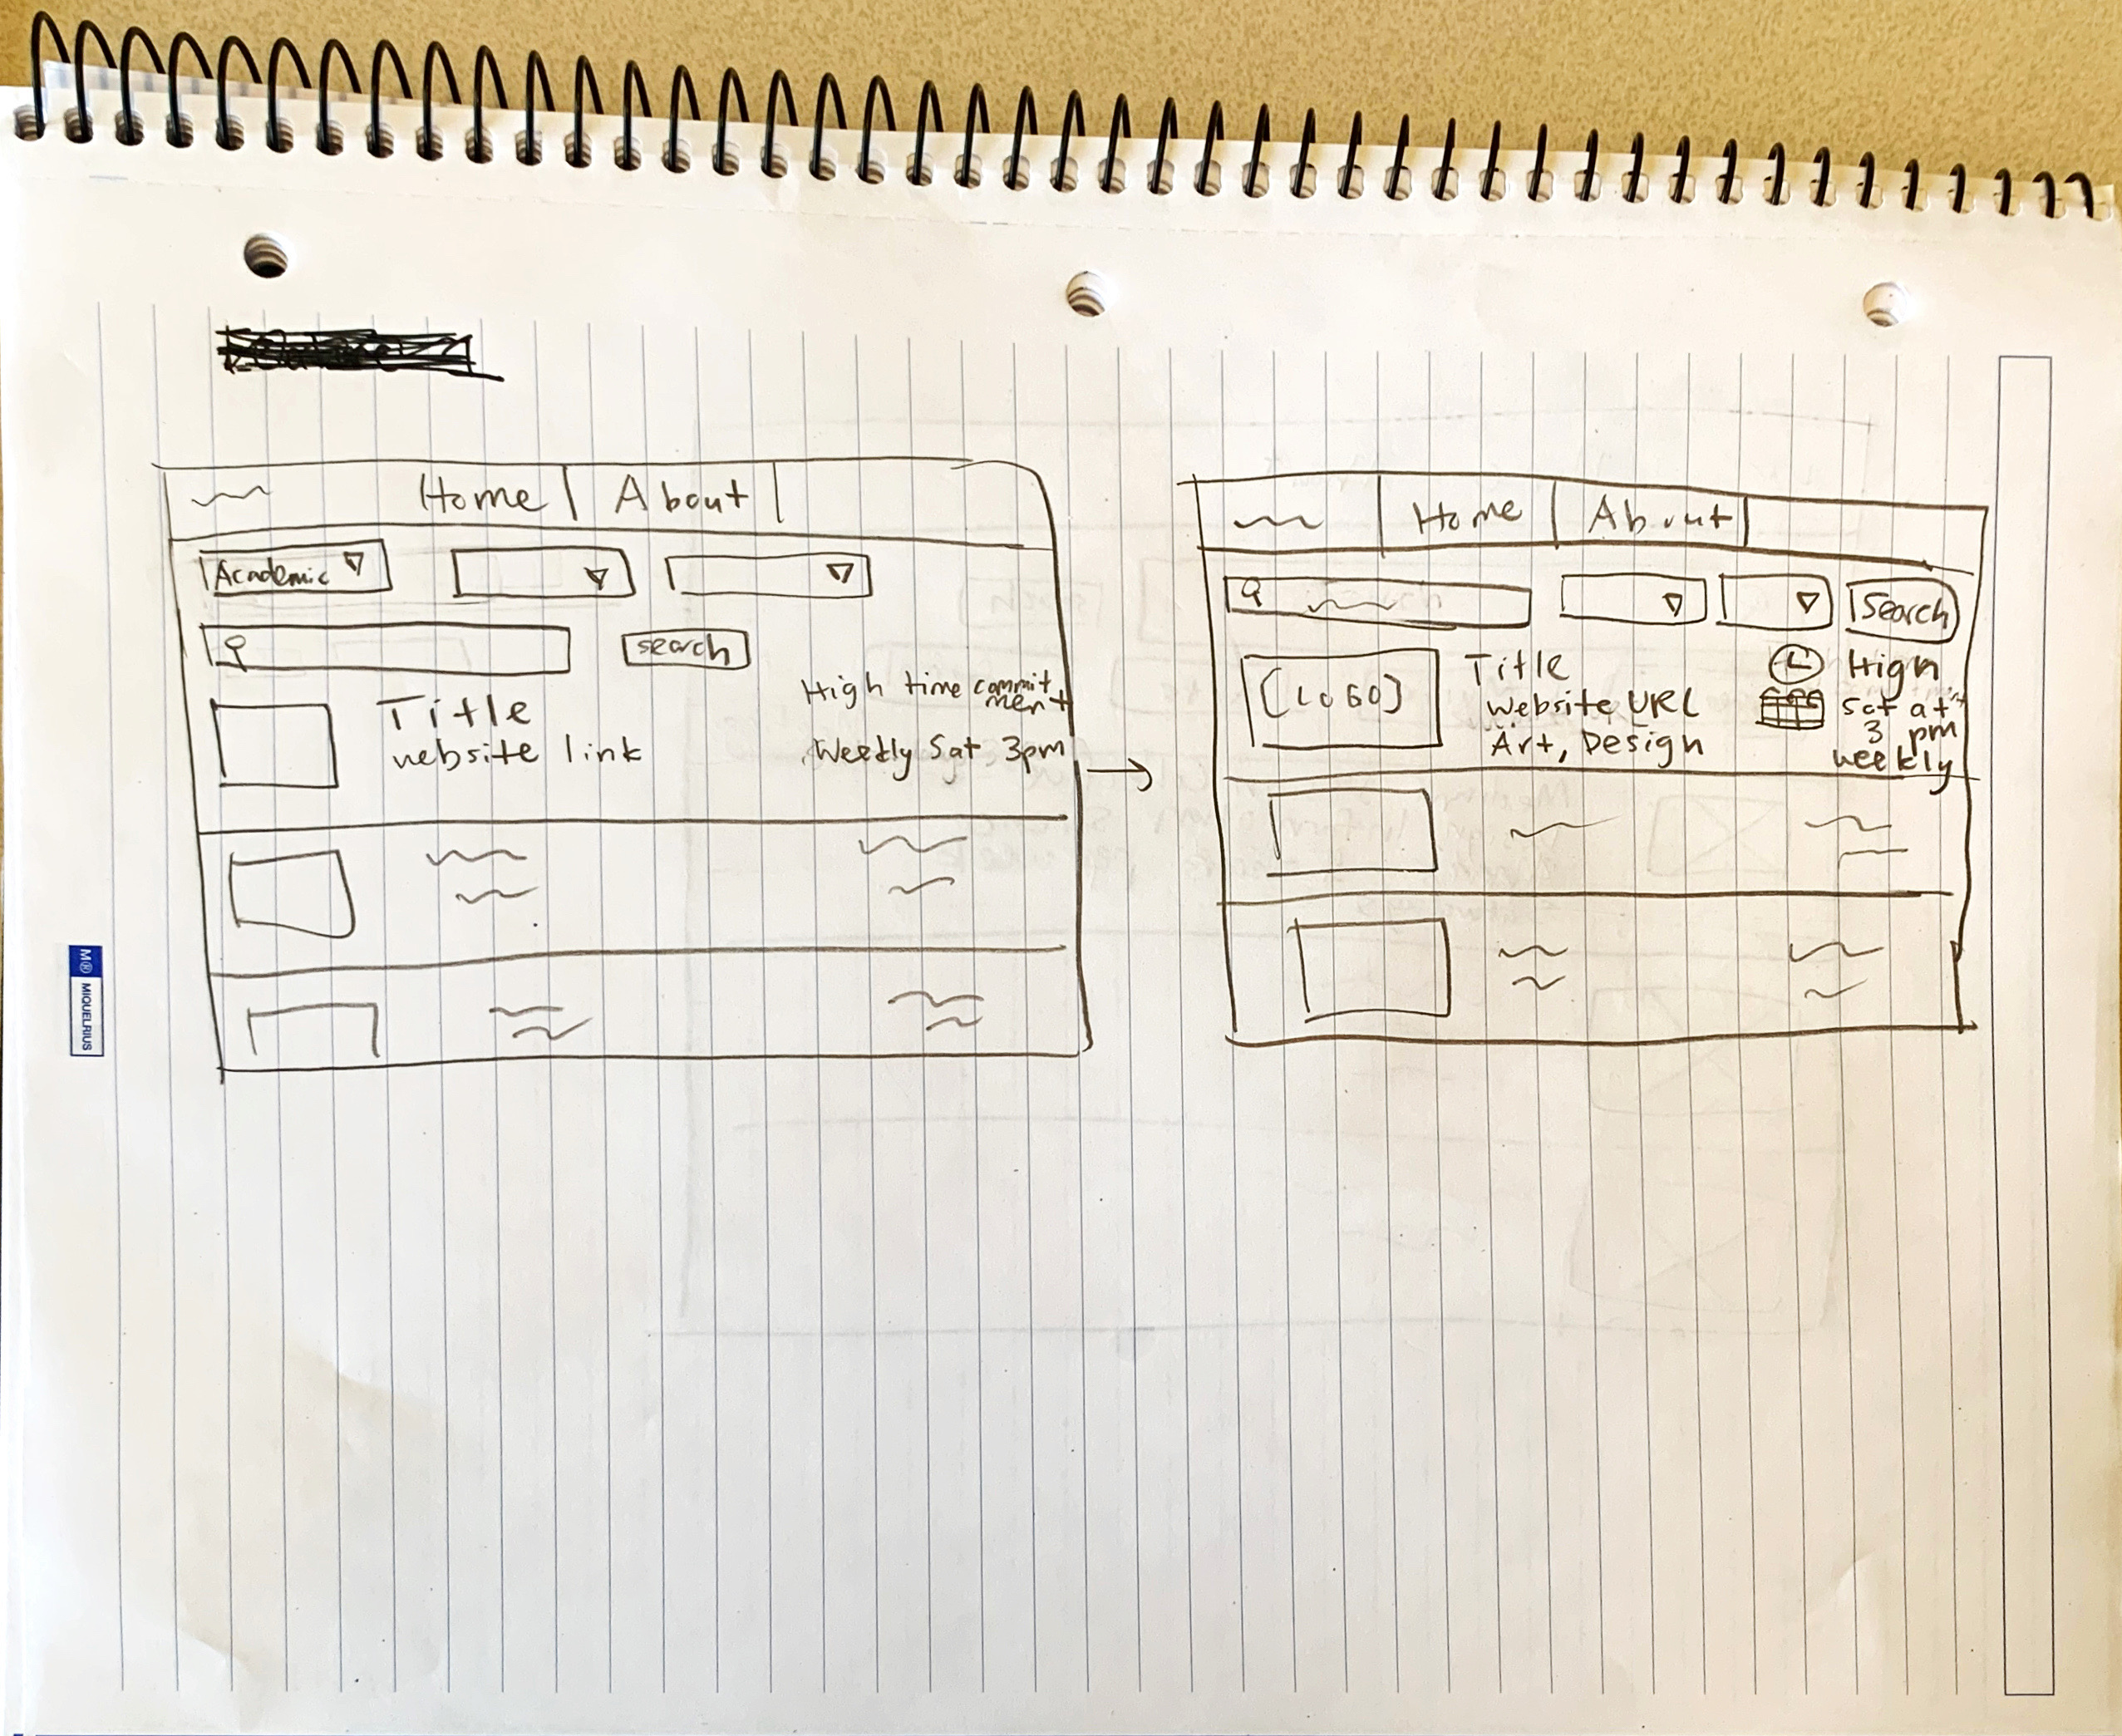 Home
About
Academic
search
Title
website link
High time commit
ment
Weekly Sat 3pm
Home
About
Search
[LOGO]
Title
website URL
Art, Design
High
Sat at
3 pm
weekly
M
MIQUELRIUS